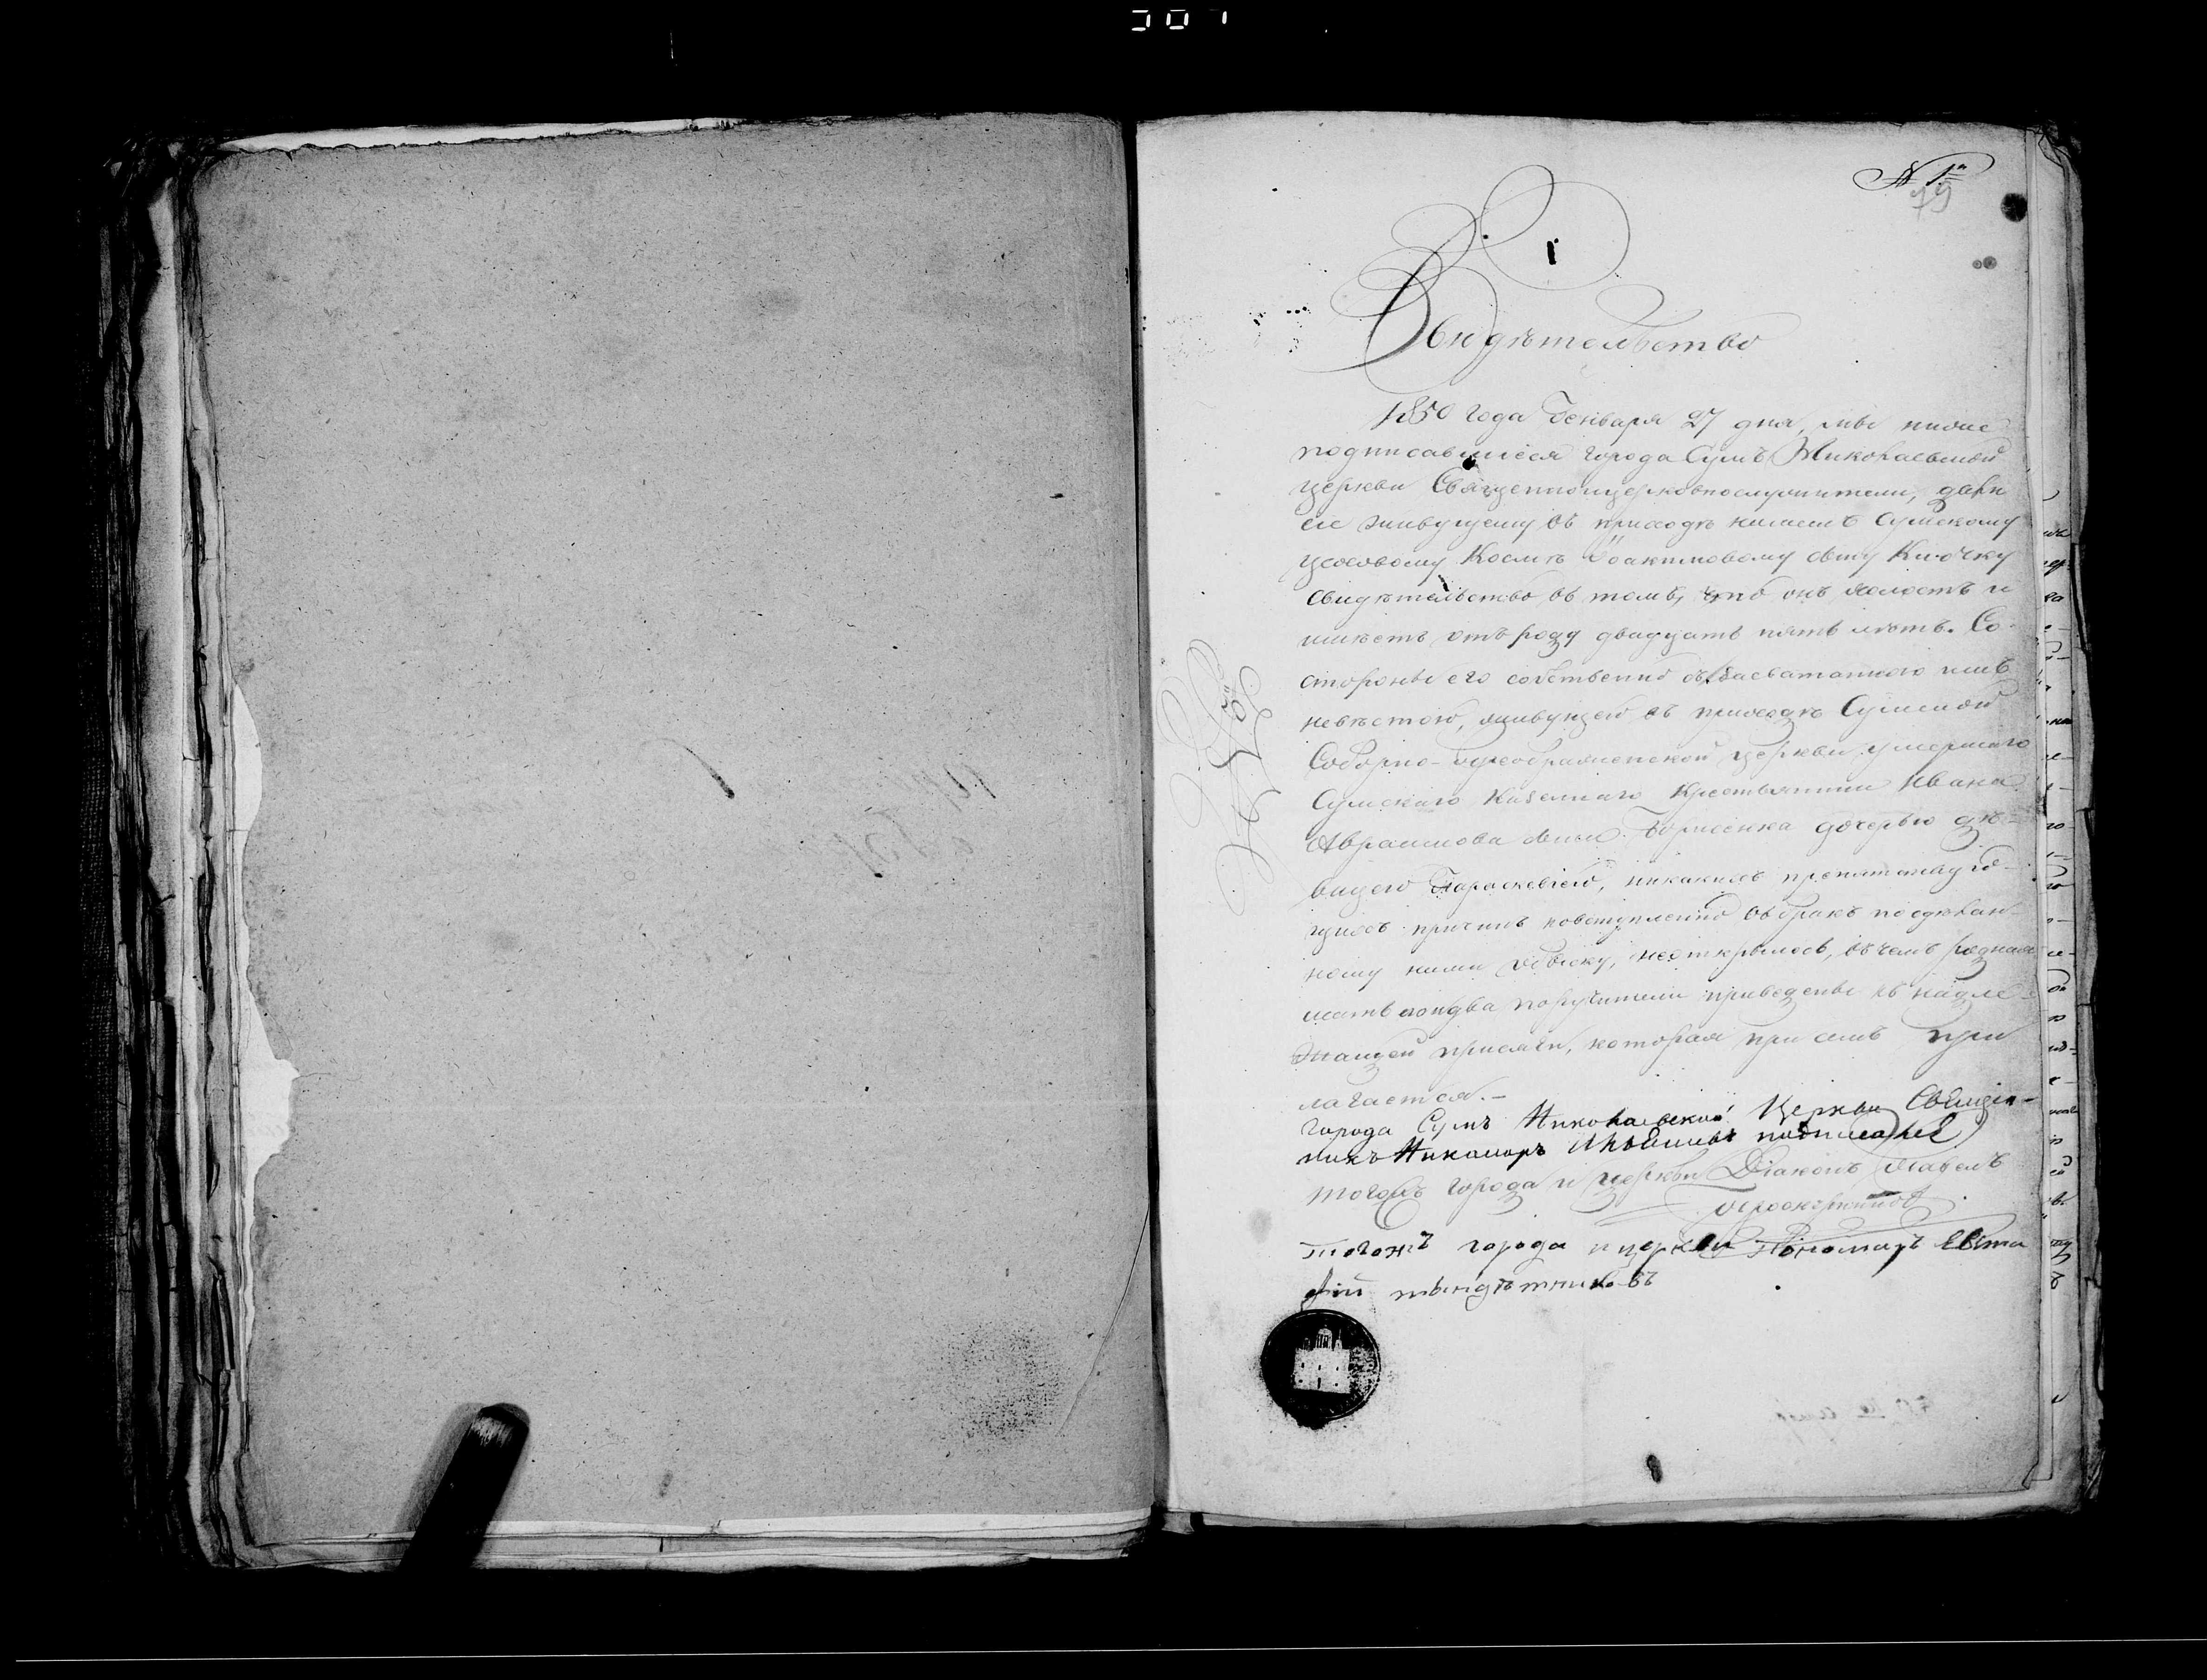 N 1й
79
Свидѣтельство
1850 года Генваря 27 дня, мы ниже
подписавшіеся города Сумъ Николаевской
церкви Священноицерковнослужители, дали
сіе живущему въ приходѣ нашемъ Сумскому
цеховому Космѣ Іоакимовому сыну Ключку
свидѣтельство въ томъ, что онъ холостъ и
имѣетъ отъ роду двадцать пять лѣтъ. Со
стороны его собственно съ засватанною имъ
невѣстою, живущею въ приходѣ Сумской
Соборно-Преображенской церкви умершаго
Сумскаго Казеннаго Крестьянина Ивана
Авраамова сына Борисенка дочерью дѣ-
вицею Параскевіею, никакихъ препятствую-
щихъ причинъ ковступленію въ бракъ посдѣлан-
ному нами обыску, неоткрылось, въ чемъ
поручители приведены къ надле-
жащей присяги, которая при семъ при
лагается.-
города Сумъ Николаевской Церкви Священ-
никъ Никаноръ подписался
тогожъ города и церкви Діаконъ Павелъ
тогожъ города и церкви Пономарь Евста
фій